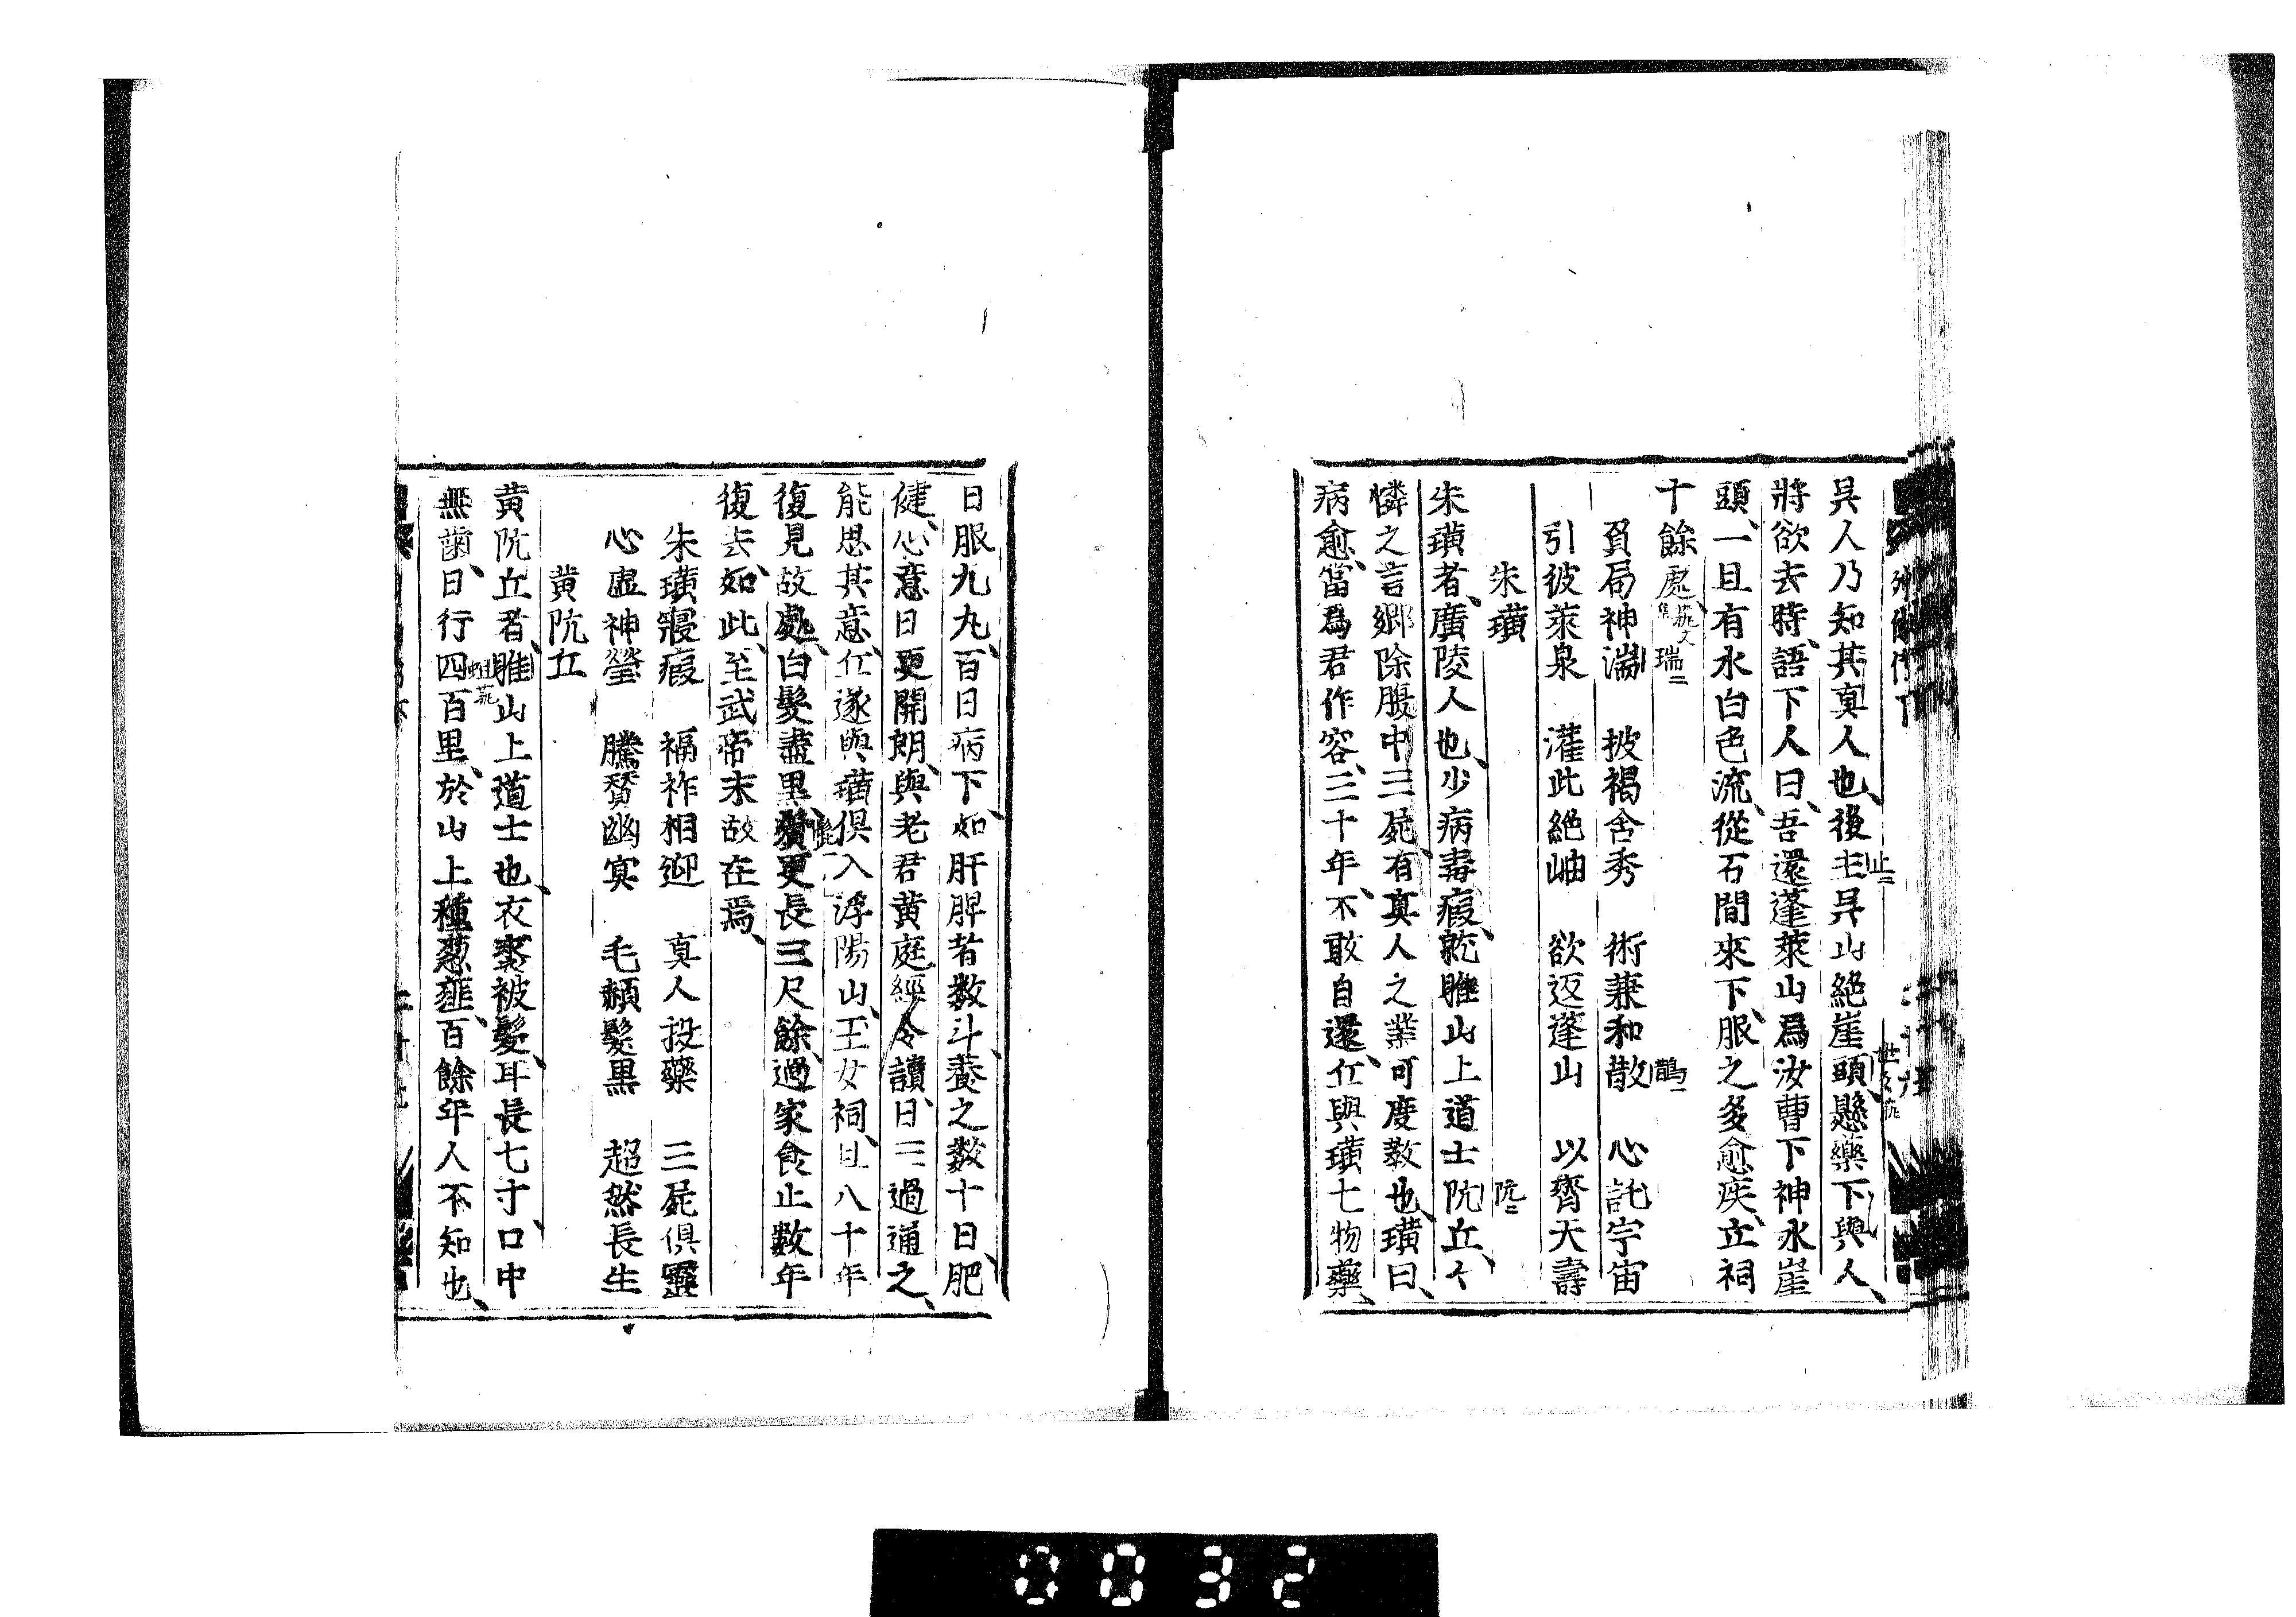 吴人乃知其真人也後主吴山絶崖頭懸藥下與人
將欲去時語下人曰吾還蓬萊山爲汝曹下神水崖
頭一旦有水白色流從石間來下服之多愈疾立祠
十餘處
負局神端　披褐含秀　術兼和散　心託宇宙
引彼萊泉　灌此絶岫　欲返蓬山　以齊天壽
朱璜
朱璜者廣陵人也少病毒瘕就睢山上道士阮丘々
憐之言卿除腹中三屍有真人之業可度教也璜曰
病愈當爲君作客三十年不敢自還丘與璜七物藥
日服九丸百日病下如肝脾者数斗養之數十日肥
健心意日更開朗與老君黄庭經令讀日三過通之
能思其意丘遂與璜俱入浮陽山玉女祠且八十年
復見故處白髮盡黑鬢更長三尺餘過家食止數年
復去如此至武帝末故在焉
朱璜寢瘕　福祚相迎　真人投藥　三屍俱靈
心虚神瑩　騰贊幽冥　毛赬髮黒　超然長生
黄阮丘
黄阮丘者睢山上道士也衣裘被髮耳長七寸口中
無齒日行四百里於山上種葱薤百餘年人不知也
0032